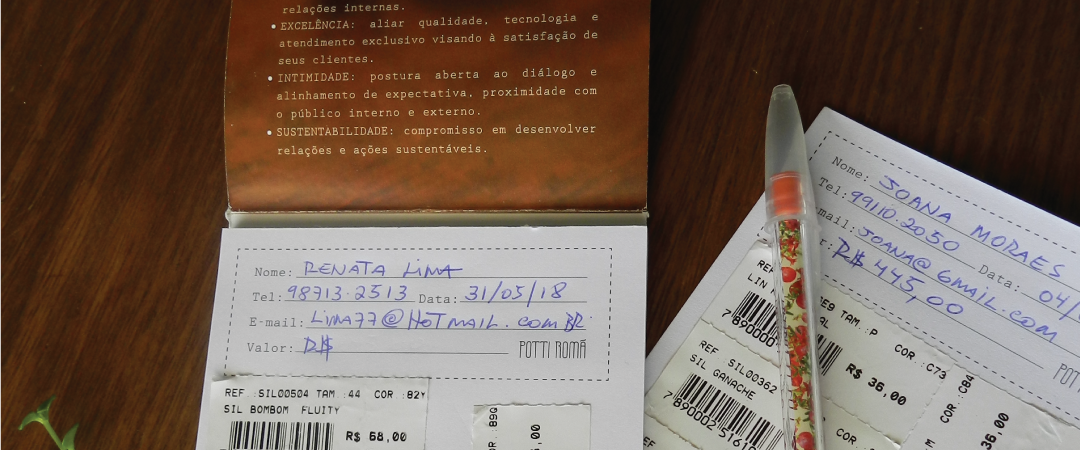 relações internas.
• EXCELÊNCIA: aliar qualidade, tecnologia e
atendimento exclusivo visando à satisfação de
seus clientes.
• INTIMIDADE: postura aberta ao diálogo e
alinhamento de expectativa, proximidade com
o público interno e externo.
• SUSTENTABILIDADE: compromisso em desenvolver
relações e ações sustentáveis.
Nome: RENATA LIMA
Tel: 98713.2513 Data: 31/05/18
E-mail: LIMA77@HOTMAIL.COM.BR
Valor: R$ POTTI ROMÃ
REF.:SIL00504 TAM.:44 COR.:82Y
SIL BOMBOM FLUITY
R$ 68,00
Nome: JOANA MORAES
Tel: 99110.2050 Data: 04/
mail: JOANA@GMAIL.COM
r: R$ 445,00
REF
LIN
TAM.:P COR.:C73
R$ 36,00
7890000
REF.:SIL00362
SIL GANACHE
COR.:C84
36,00
REF
COR.: